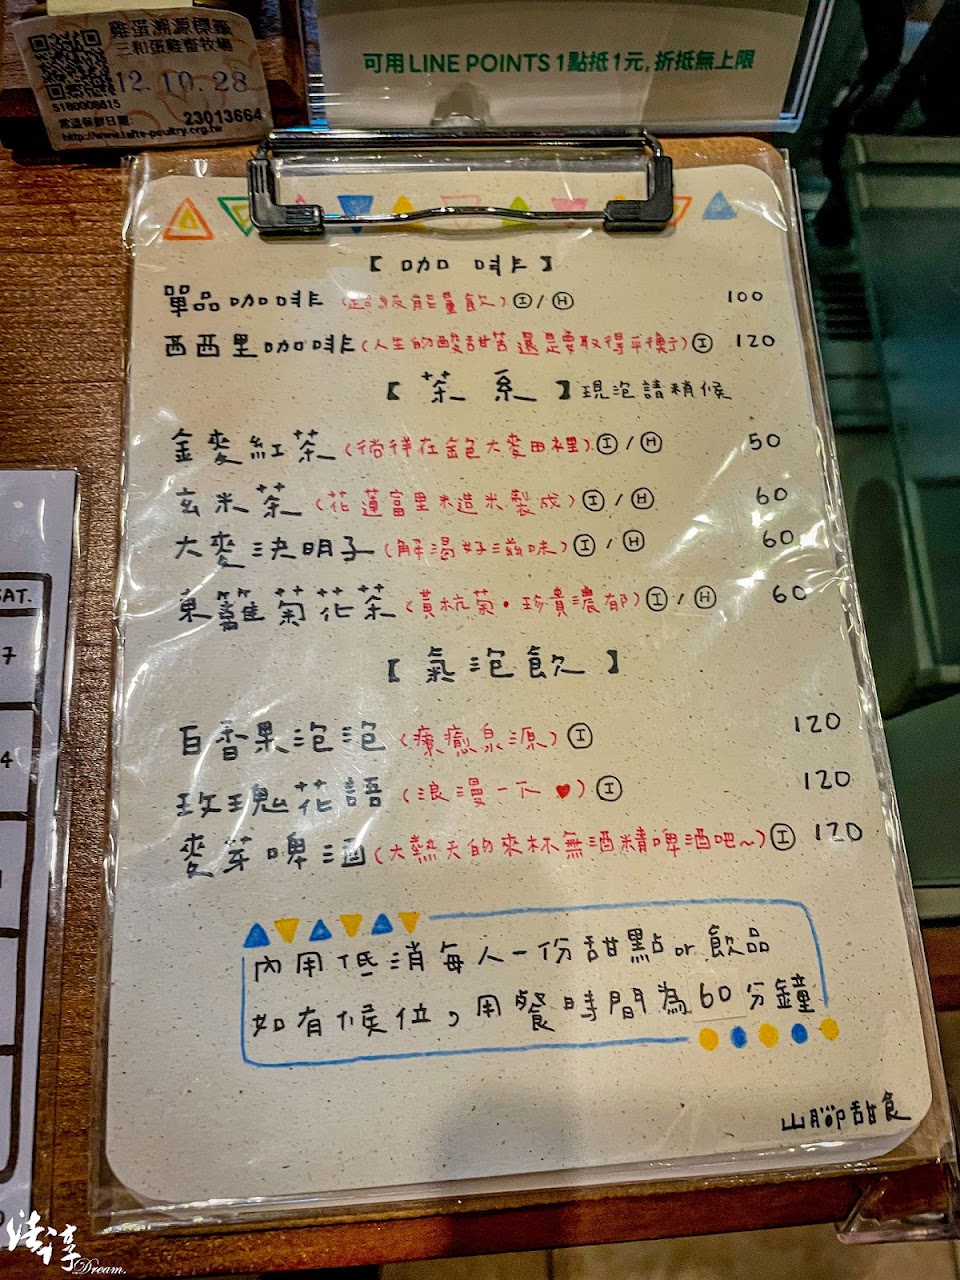 雞蛋溯源標籤
三和蛋雞畜牧場
12.10.28
5180008815
常溫保鮮日期:
23013664
http://www.tafte-poultry.org.tw
可用LINE POINTS 1點抵1元,折抵無上限
【咖啡】
單品咖啡(超級能量飲)Ⓘ/Ⓗ 100
西西里咖啡(人生的酸甜苦還是要取得平衡)Ⓘ 120
【茶系】現泡請稍候
金麥紅茶(徜徉在金色大麥田裡)Ⓘ/Ⓗ 50
玄米茶(花蓮富里米造米製成)Ⓘ/Ⓗ 60
大麥決明子(解渴好滋味)Ⓘ/Ⓗ 60
東籬菊花茶(黃杭菊·珍貴濃郁)Ⓘ/Ⓗ 60
【氣泡飲】
百香果泡泡(療癒泉源)Ⓘ 120
玫瑰花語(浪漫一下♥)Ⓘ 120
麥芽啤酒(大熱天的來杯無酒精啤酒吧~)Ⓘ 120
內用低消每人一份甜點or飲品
如有候位,用餐時間為60分鐘
山腳甜食
SAT.
7
4
Dream.